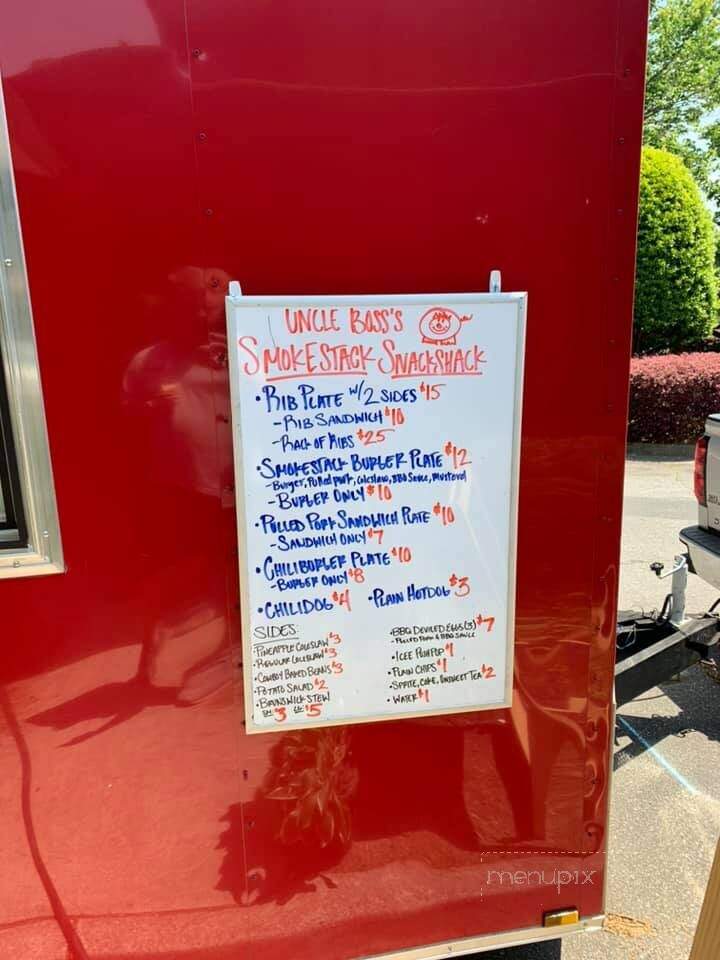 UNCLE BOSS'S
SMOKESTACK SNACKSHACK
• RIB PLATE W/2 SIDES $15
- RIB SANDWICH $10
- RACK OF RIBS $25
• SMOKESTACK BURGER PLATE $12
- Burger, Pulled pork, coleslaw, BBQ Sauce, Mustard
- BURGER ONLY $10
• PULLED PORK SANDWICH PLATE $10
- SANDWICH ONLY $7
• CHILIBURGER PLATE $10
- BURGER ONLY $8
• CHILIDOG $4 • PLAIN HOTDOG $3
SIDES:
• PINEAPPLE COLESLAW $3
• REGULAR COLESLAW $3
• COWBOY BAKED BEANS $3
• POTATO SALAD $2
• BRUNSWICK STEW
SM $3 LG $5
• BBQ DEVILED EGGS (3) $7
- PULLED PORK & BBQ SAUCE
• ICEE PUSH POP $1
• PLAIN CHIPS $1
• SPRITE, COKE, UNSWEET TEA $2
• WATER $1
menupix